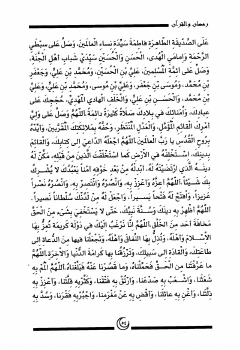 رمضان والقرآن
عَلَى الصِّدِّيقَةِ الطَّاهِرَةِ فَاطِمَةَ سَيِّدَةِ نِساءِ الْعالَمينَ، وَصَلِّ عَلى سِبْطَيِ
الرَّحْمَةِ وَإمامَيِ الْهُدى، الْحَسَنِ وَالْحُسَيْنِ سَيِّدَيْ شَبابِ أهْلِ الْجَنَّةِ،
وَصَلِّ عَلى أئِمَّةِ الْمُسْلِمينَ، عَلِيِّ بْنِ الْحُسَيْنِ، وَمُحَمَّدِ بْنِ عَلِيٍّ، وَجَعْفَرِ
بْنِ مُحَمَّدٍ، وَمُوسَى بْنِ جَعْفَرٍ، وَعَلِيِّ بْنِ مُوسى، وَمُحَمَّدِ بْنِ عَلِيٍّ، وَعَلِيِّ
بْنِ مُحَمَّدٍ، وَالْحَسَنِ بْنِ عَلِيٍّ، وَالْخَلَفِ الْهادي الْمَهْدِيِّ، حُجَجِكَ عَلى
عِبادِكَ، وَاُمَنائِكَ في بِلادِكَ صَلَاةً كَثيرَةً دائِمَةً اَللّهُمَّ وَصَلِّ عَلى وَلِيِّ
اَمْرِكَ الْقائِمِ الْمُؤَمَّلِ، وَالْعَدْلِ الْمُنْتَظَرِ، وَحُفَّهُ بِمَلائِكَتِكَ الْمُقَرَّبينَ، وَاَيِّدْهُ
بِرُوحِ الْقُدُسِ يا رَبَّ الْعالَمينَ. اَللّهُمَّ اجْعَلْهُ الدّاعِيَ اِلى كِتابِكَ، وَالْقائِمَ
بِدينِكَ، اِسْتَخْلِفْهُ في الْاَرْضِ كَما اسْتَخْلَفْتَ الَّذينَ مِنْ قَبْلِهِ، مَكِّنْ لَهُ
دينَهُ الَّذي ارْتَضَيْتَهُ لَهُ، اَبْدِلْهُ مِنْ بَعْدِ خَوْفِهِ اَمْناً يَعْبُدُكَ لا يُشْرِكُ
بِكَ شَيْئاً. اَللّهُمَّ اَعِزَّهُ وَاَعْزِزْ بِهِ، وَانْصُرْهُ وَانْتَصِرْ بِهِ، وَانْصُرْهُ نَصْراً
عَزيزاً، وَافْتَحْ لَهُ فَتْحاً يَسيراً، وَاجْعَلْ لَهُ مِنْ لَدُنْكَ سُلْطاناً نَصيراً.
اَللّهُمَّ اَظْهِرْ بِهِ دينَكَ وَسُنَّةَ نَبِيِّكَ، حَتّى لا يَسْتَخْفِيَ بِشَيْءٍ مِنَ الْحَقِّ
مَخافَةَ اَحَدٍ مِنَ الْخَلْقِ. اَللّهُمَّ اِنّا نَرْغَبُ اِلَيْكَ في دَوْلَةٍ كَريمَةٍ تُعِزُّ بِهَا
الْاِسْلامَ وَاَهْلَهُ، وَتُذِلُّ بِهَا النِّفاقَ وَاَهْلَهُ، وَتَجْعَلُنا فيها مِنَ الدُّعاةِ اِلى
طاعَتِكَ، وَالْقادَةِ اِلى سَبيلِكَ، وَتَرْزُقُنا بِها كَرامَةَ الدُّنْيا وَالْآخِرَةِ. اَللّهُمَّ
ما عَرَّفْتَنا مِنَ الْحَقِّ فَحَمِّلْناهُ، وَما قَصُرْنا عَنْهُ فَبَلِّغْناهُ. اَللّهُمَّ الْمُمْ بِهِ
شَعَثَنا، وَاشْعَبْ بِهِ صَدْعَنا، وَارْتُقْ بِهِ فَتْقَنا، وَكَثِّرْ بِهِ قِلَّتَنا، وَاَعْزِزْ بِهِ
ذِلَّتَنا، وَاَغْنِ بِهِ عائِلَنا، وَاَقْضِ بِهِ عَنْ مَغْرَمِنا، وَاجْبُرْ بِهِ فَقْرَنا، وَسُدَّ بِهِ